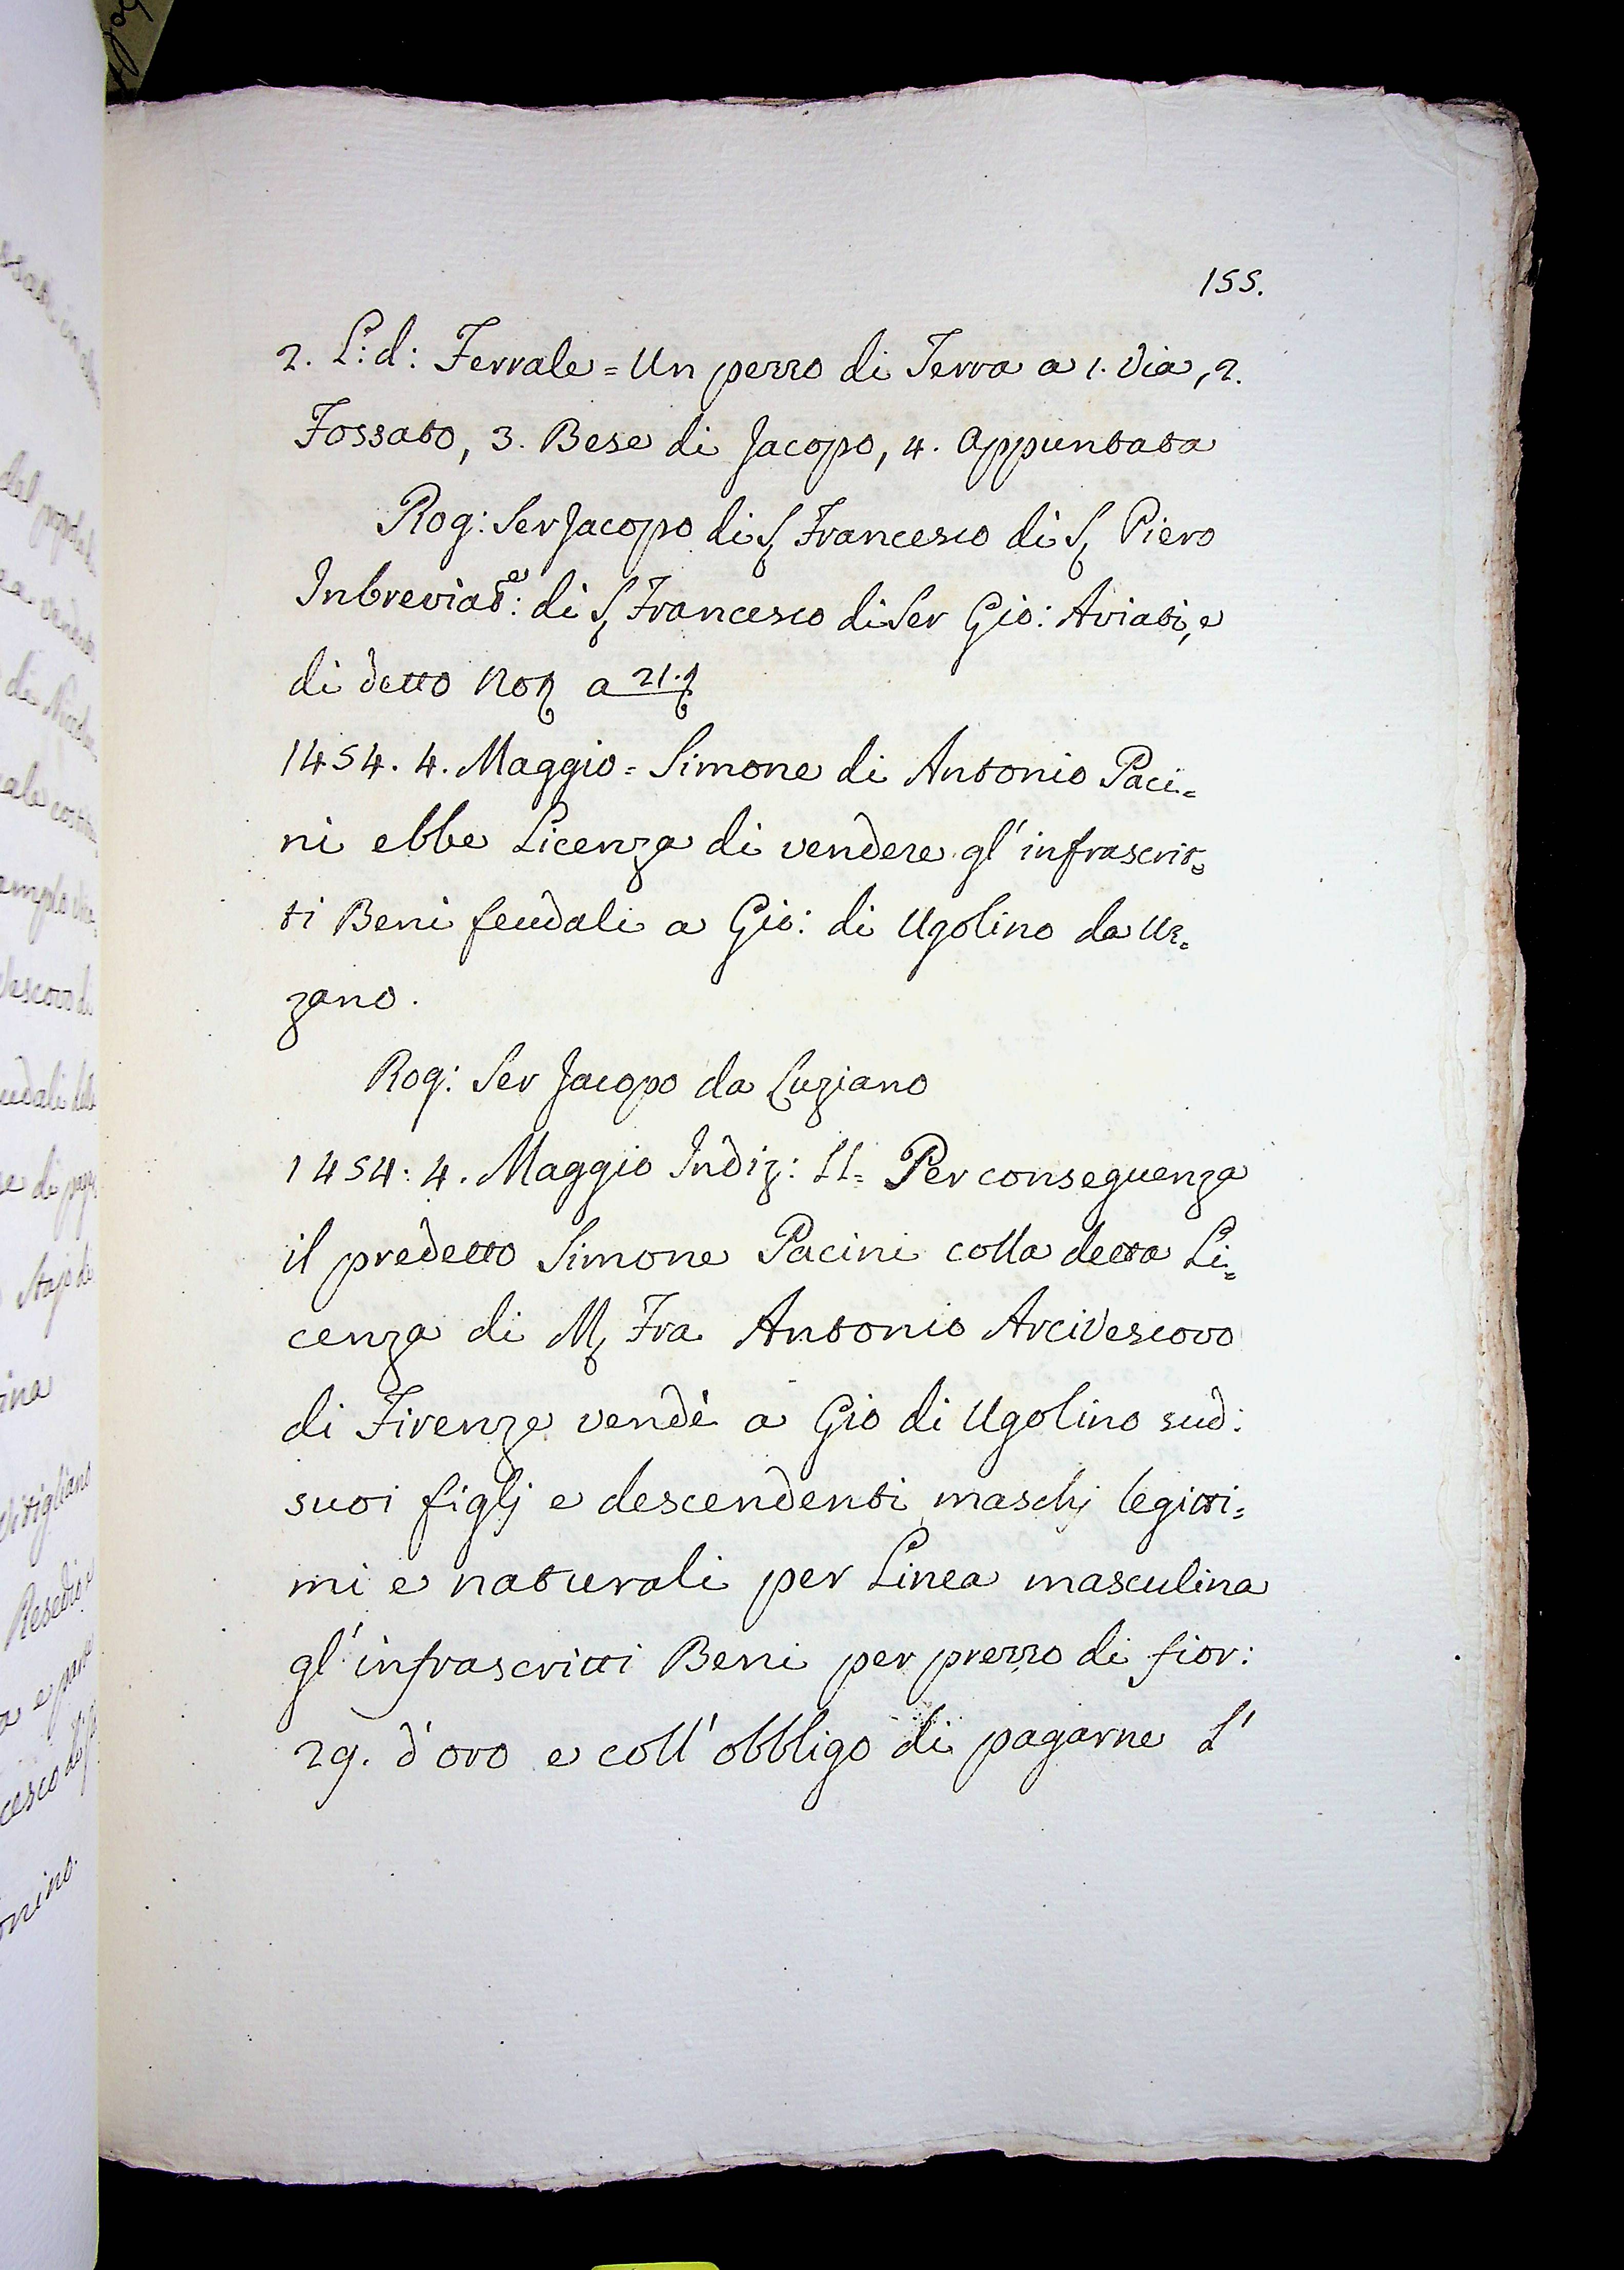 155.
2. L: d: Ferrale = Un pezzo di Terra a 1. Via, 2.
Fossato, 3. Bese di Jacopo, 4. Appuntata
Rog: Ser Jacopo di S. Francesco di S. Piero
Inbreviat:e di S. Francesco di Ser Gio: Aviati, e
di detto Not a 21.
1454. 4. Maggio = Simone di Antonio Paci=
ni ebbe Licenza di vendere gl' infrascrit=
ti Beni feudali a Gio: di Ugolino da Uz=
zano.
Rog: Ser Jacopo da Luziano
1454: 4. Maggio Indiz: II = Per conseguenza
il predetto Simone Pacini colla detta Li=
cenza di M. Fra Antonio Arcivescovo
di Firenze vendè a Gio di Ugolino sud:
suoi figlj e descendenti maschj legitti=
mi e naturali per Linea masculina
gl' infrascritti Beni per prezzo di fior:
29. d'oro e coll' obbligo di pagarne L'